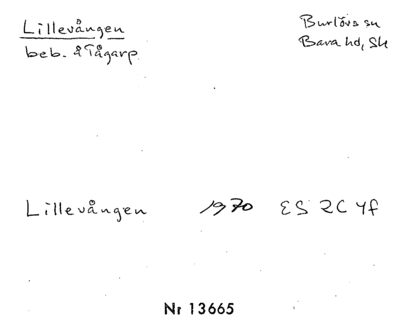 Lillevången
Burlövs sn
beb. å Tågarp
Bara hd, Sk
Lillevången 1970 ES 2C 4f
Nr 13665